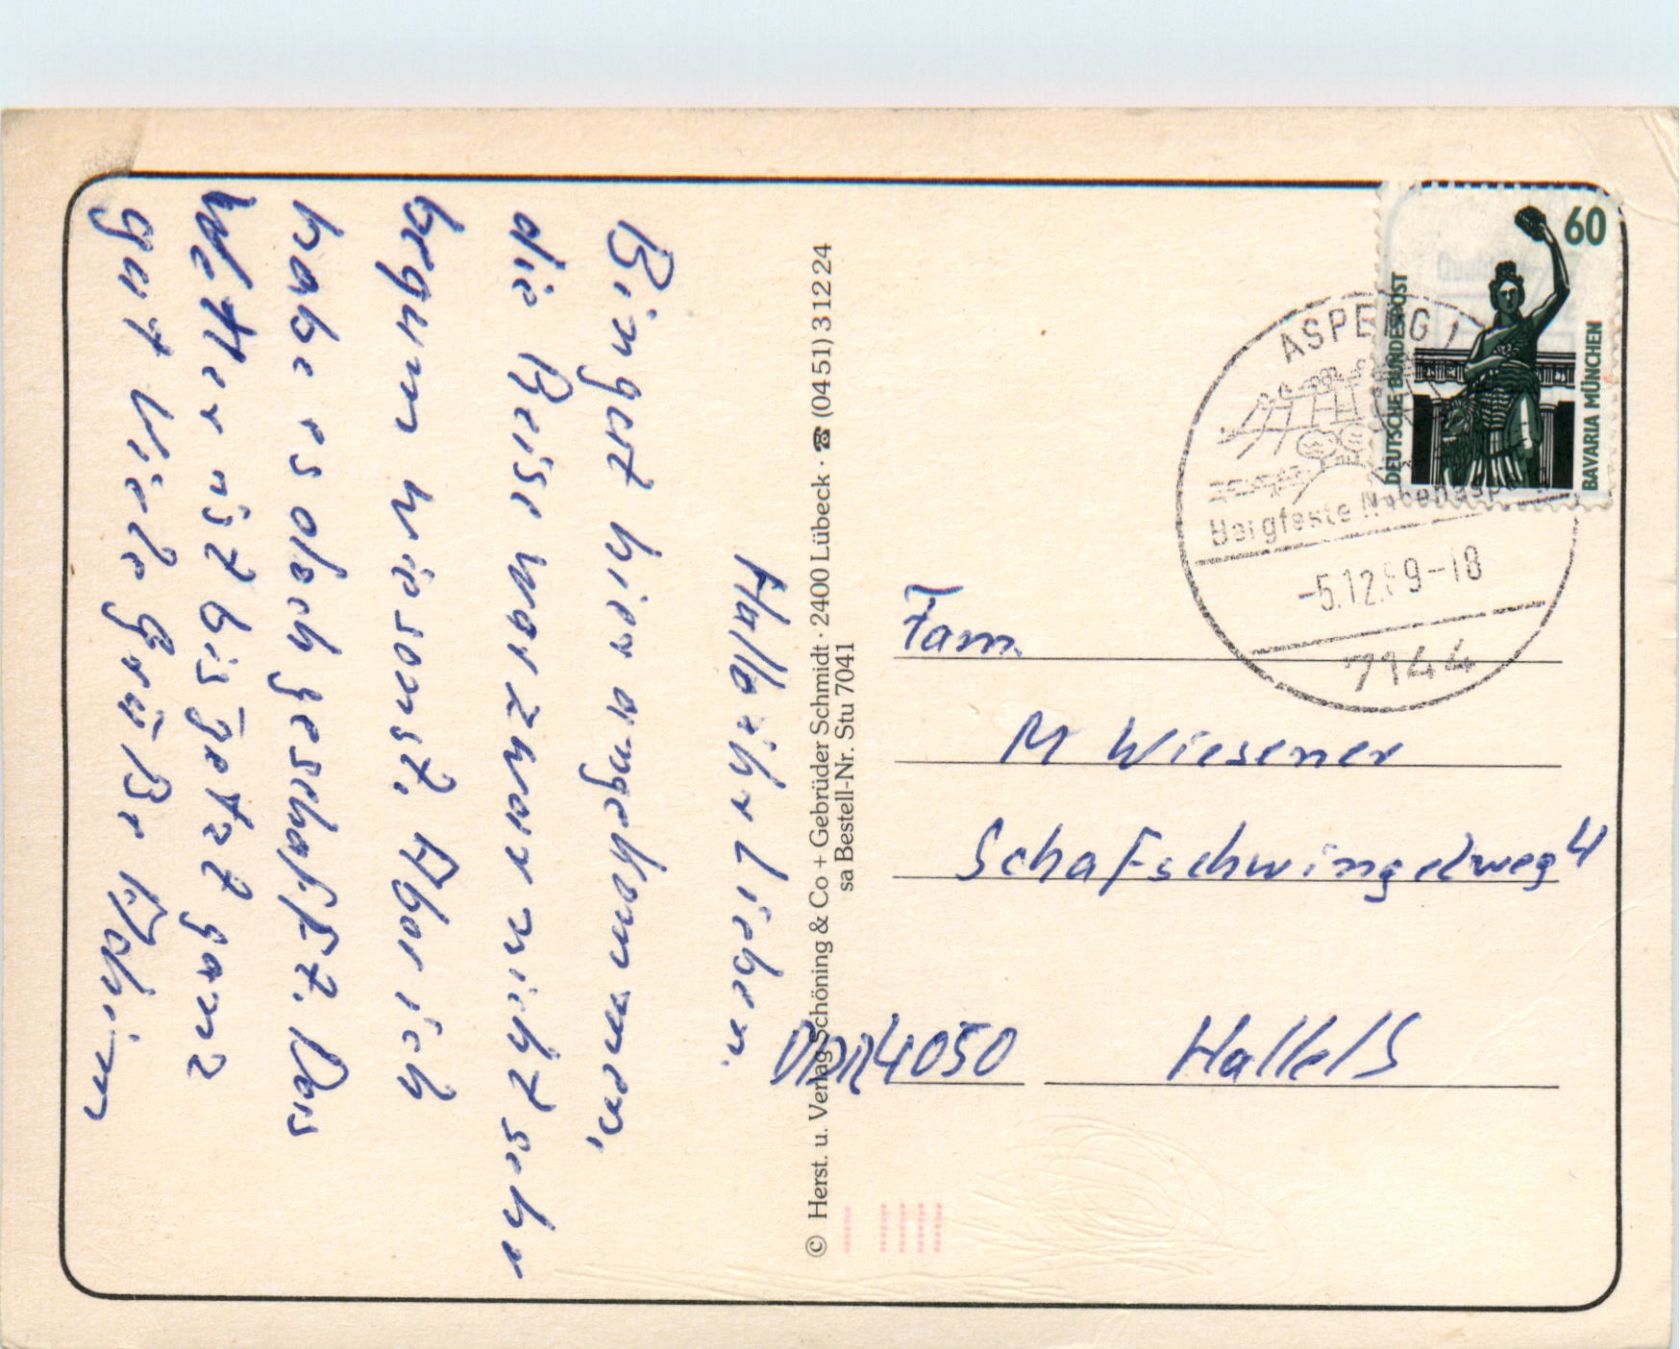 Hallo ihr Lieben.
Bin gut hier angekommen,
die Reise war zwar nicht sehr
bequem wie sonst. Aber ich
habe es doch geschafft. Das
Wetter ist bis jetzt ganz
gut Viele Grüße Achim
© Herst. u. Verlag Schöning & Co + Gebrüder Schmidt · 2400 Lübeck · ☎ (04 51) 3 12 24
sa Bestell-Nr. Stu 7041
60
DEUTSCHE BUNDESPOST
BAVARIA MÜNCHEN
ASPERG 1
Bergfeste Hohenasperg
-5.12.89-18
7144
Fam.
M Wiesener
Schafschwingelweg 4
DDR 4050 Halle/S